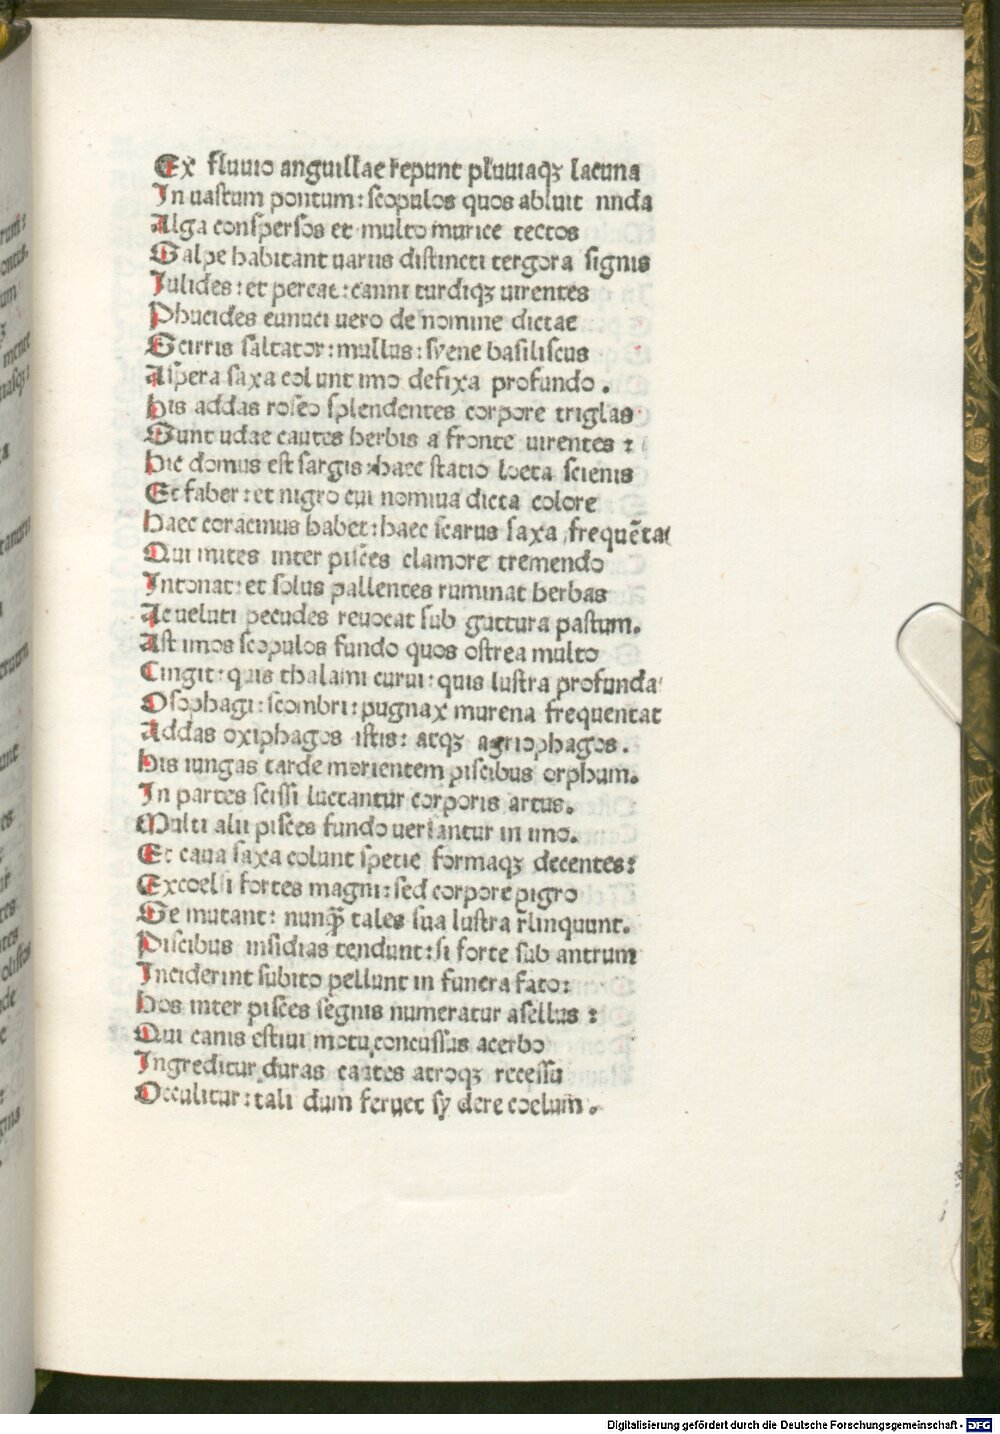 Ex fluuio anguillae repunt pluuiaqꝫ lacuna
In uastum pontum: scopulos quos abluit nnda
Alga conspersos et multo murice tectos
Salpe habitant uariis distincti tergora signis
Iulides: et percae: canni turdiqꝫ uirentes
Phucides eunuci uero de nomine dictae
Scirris saltator: mullus: syene basiliscus
Aspera saxa colunt imo defixa profundo.
His addas roseo splendentes corpore triglas
Sunt udae cautes herbis a fronte uirentes:
Hic domus est sargis: haec statio loeta scienis
Et faber: et nigro cui nomiua dicta colore
Haec coracinus habet: haec scarus saxa frequētat
Qui mites inter pisces clamore tremendo
Intonat: et solus pallentes ruminat herbas
Ac ueluti pecudes reuocat sub guttura pastum.
Ast imos scopulos fundo quos ostrea multo
Cingit: quis thalami curui: quis lustra profunda
Osophagi: scombri: pugnax murena frequentat
Addas oxiphagos istis: atqꝫ agriophagos.
His iungas tarde morientem piscibus orphum.
In partes scissi luctantur corporis artus.
Multi alii pisces fundo uersantur in imo.
Et caua saxa colunt spetie formaqꝫ decentes:
Excoelsi fortes magni: sed corpore pigro
Se mutant: nunqꝫ̄ tales sua lustra r̄linquunt.
Piscibus insidias tendunt: si forte sub antrum
Inciderint subito pellunt in funera fato:
Hos inter pisces segnis numeratur asellus:
Qui canis estiui motu concussus acerbo
Ingreditur duras cautes atroqꝫ recessu
Occulitur: tali dum feruet sydere coelum.
Digitalisierung gefördert durch die Deutsche Forschungsgemeinschaft - DFG